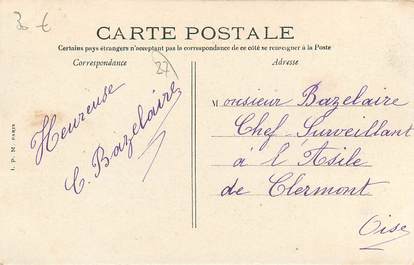 3 €
CARTE POSTALE
Certains pays étrangers n'acceptant pas la correspondance de ce côté se renseigner à la Poste
Correspondance
Adresse
27
Heureuse
C. Bazelaire
Monsieur Bazelaire
Chef-Surveillant
à l'Asile
de Clermont
Oise
I. P. M. PARIS